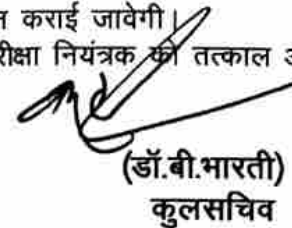 कराई जावेगी।
नियंत्रक को तत्काल
(डॉ.बी.भारती)
कुलसचिव